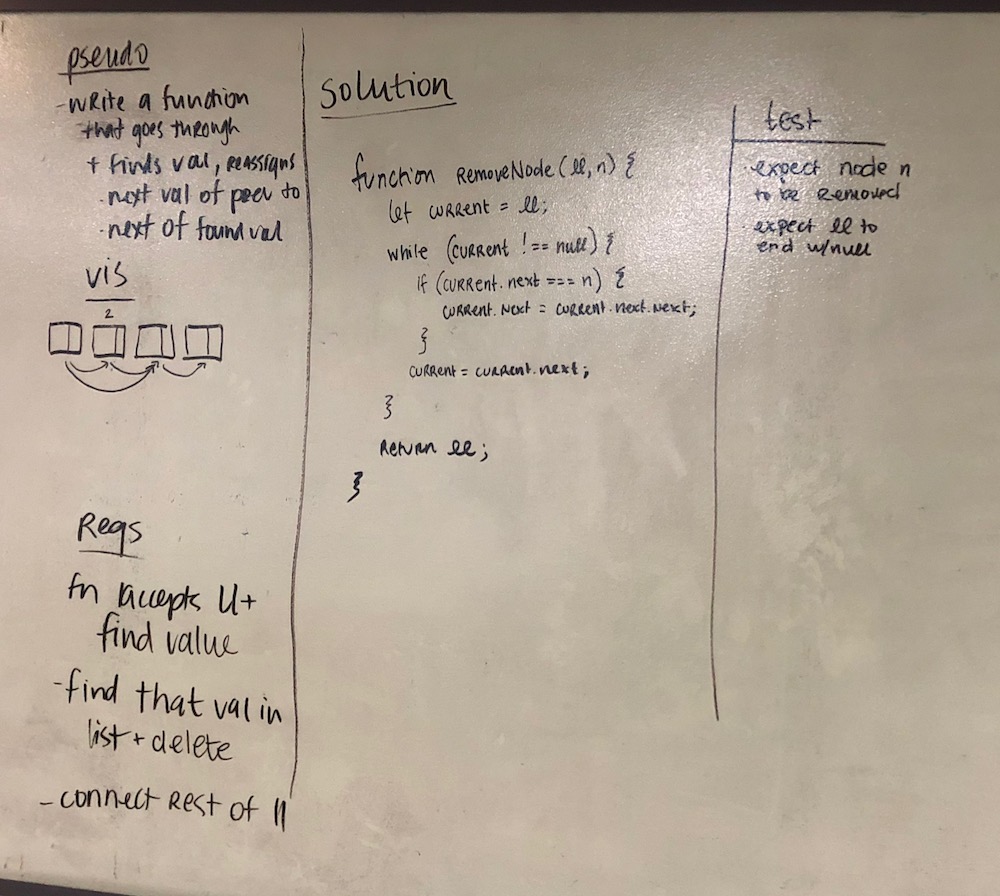 pseudo
-write a function
that goes through
+ finds val, reassigns
. next val of prev to
. next of found val
vis
2
Reqs
fn accepts ll +
find value
-find that val in
list + delete
- connect rest of ll
solution
function RemoveNode(ll, n) {
let current = ll;
while (current !== null) {
if (current.next === n) {
current.next = current.next.next;
}
current = current.next;
}
return ll;
}
test
· expect node n
to be removed
· expect ll to
end w/null